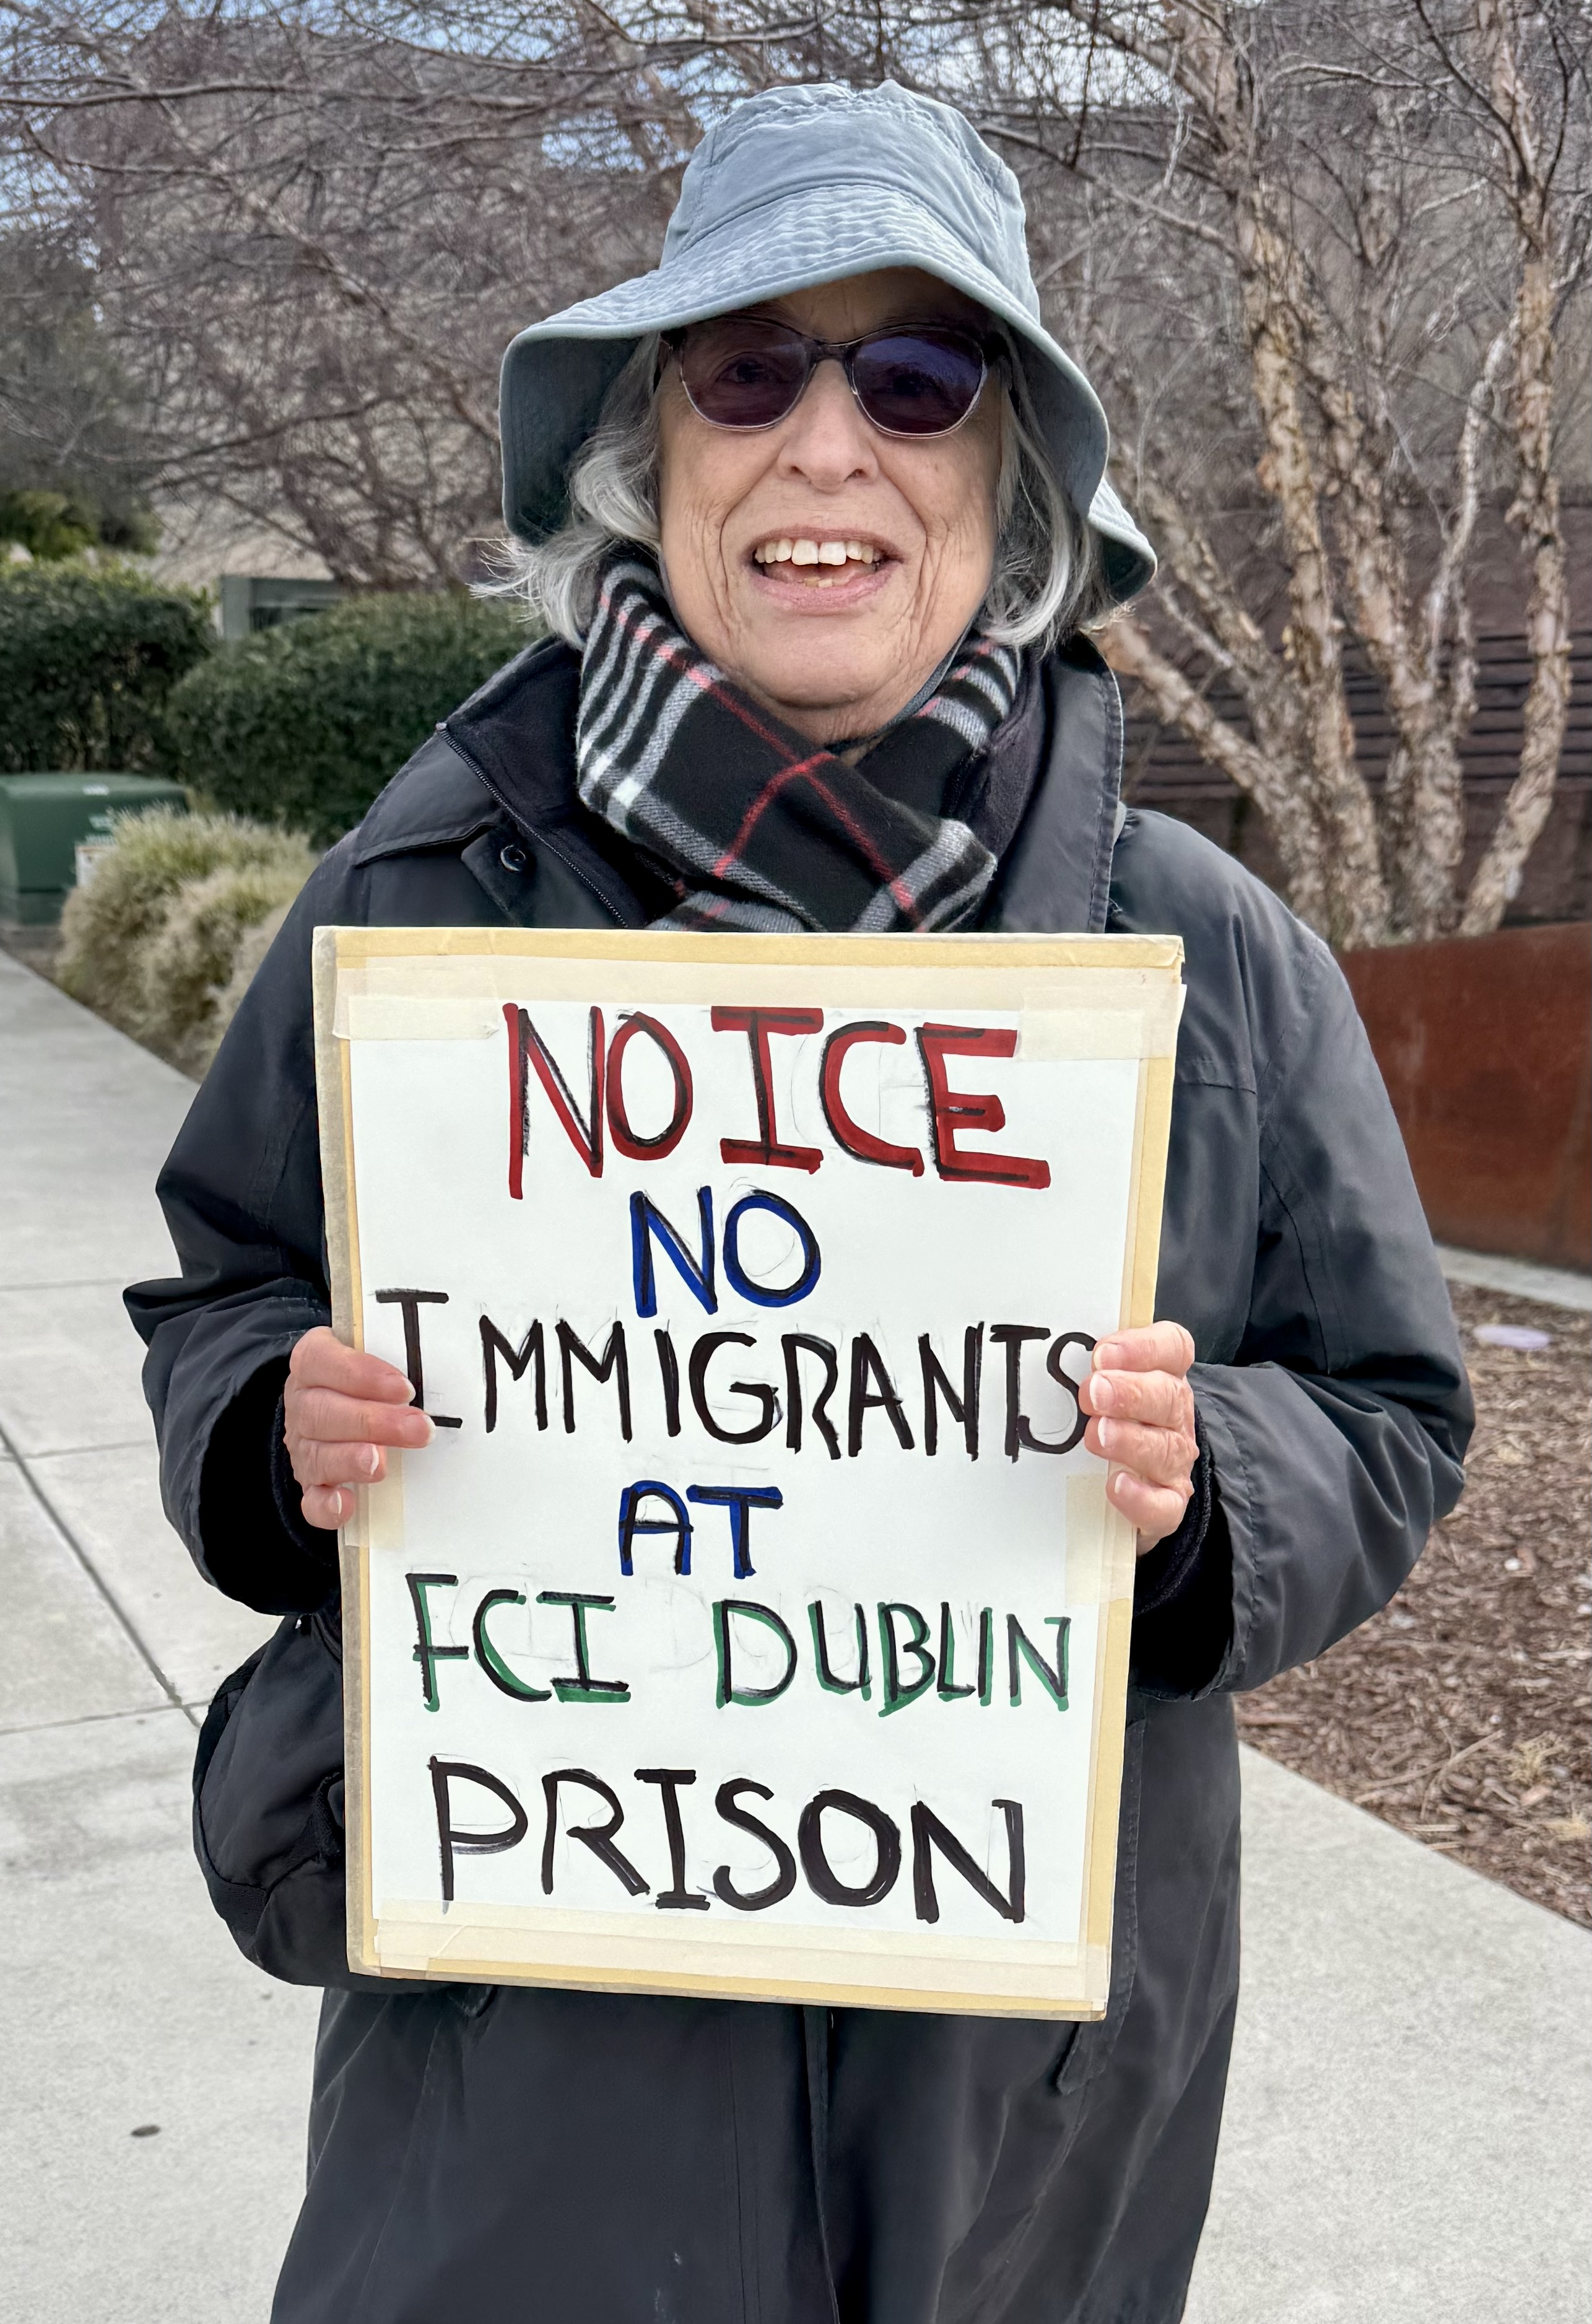 NO ICE
NO
IMMIGRANTS
AT
FCI DUBLIN
PRISON